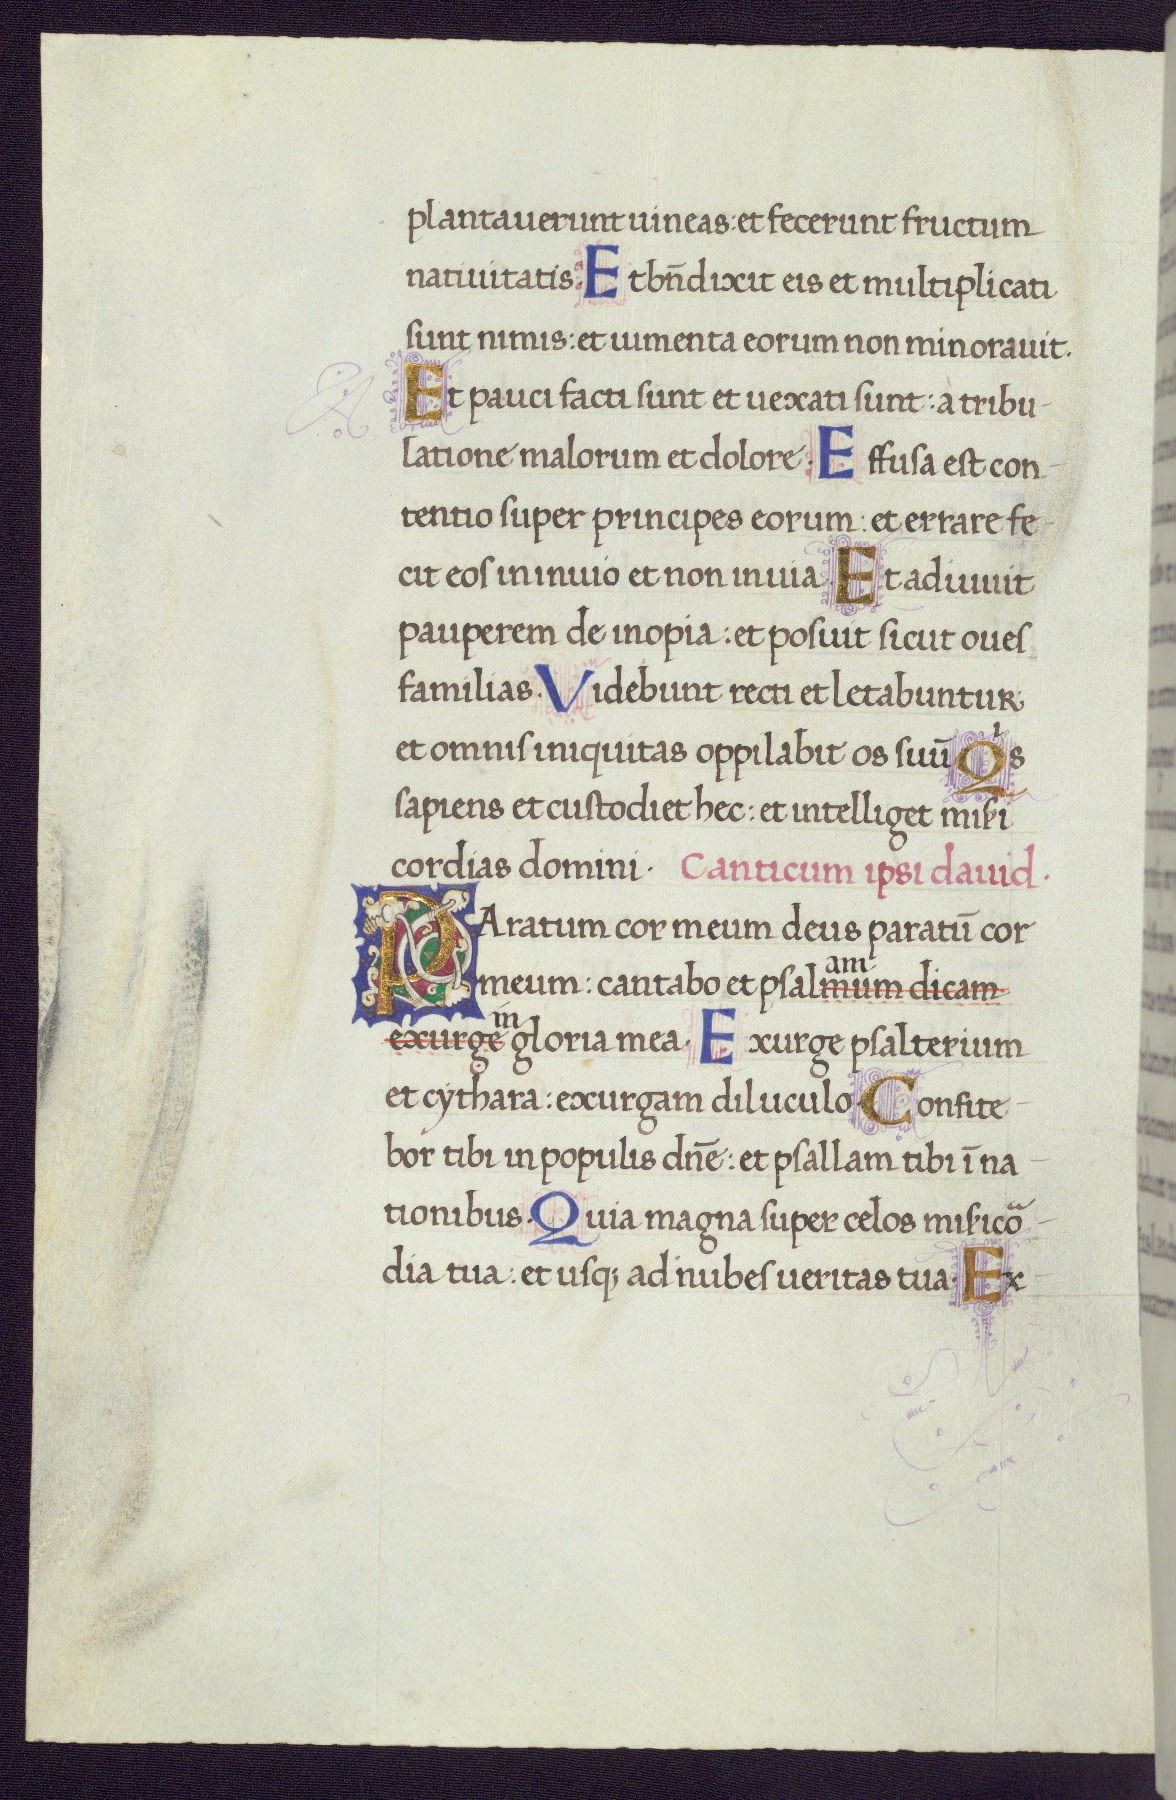 plantauerunt uineas: et fecerunt fructum
natiuitatis: Et bn̄dixit eis et multiplicati
sunt nimis: et iumenta eorum non minorauit.
Et pauci facti sunt et uexati sunt: a tribu-
latione malorum et dolore: Effusa est con-
tentio super principes eorum: et errare fe-
cit eos in inuio et non in uia. Et adiuuit
pauperem de inopia: et posuit sicut oues
familias. Videbunt recti et letabuntur
et omnis iniquitas oppilabit os suū Qⁱs
sapiens et custodiet hec: et intelliget mis̄i
cordias domini. Canticum ipsi dauid.
PAratum cor meum deus paratū cor
am
meum: cantabo et psalmum dicam
in
exurge gloria mea. Exurge psalterium
et cythara: exurgam diluculo. Confite-
bor tibi in populis dn̄e: et psallam tibi ī na-
tionibus. Quia magna super celos mis̄icō-
dia tua: et usq; ad nubes ueritas tua. Ex-